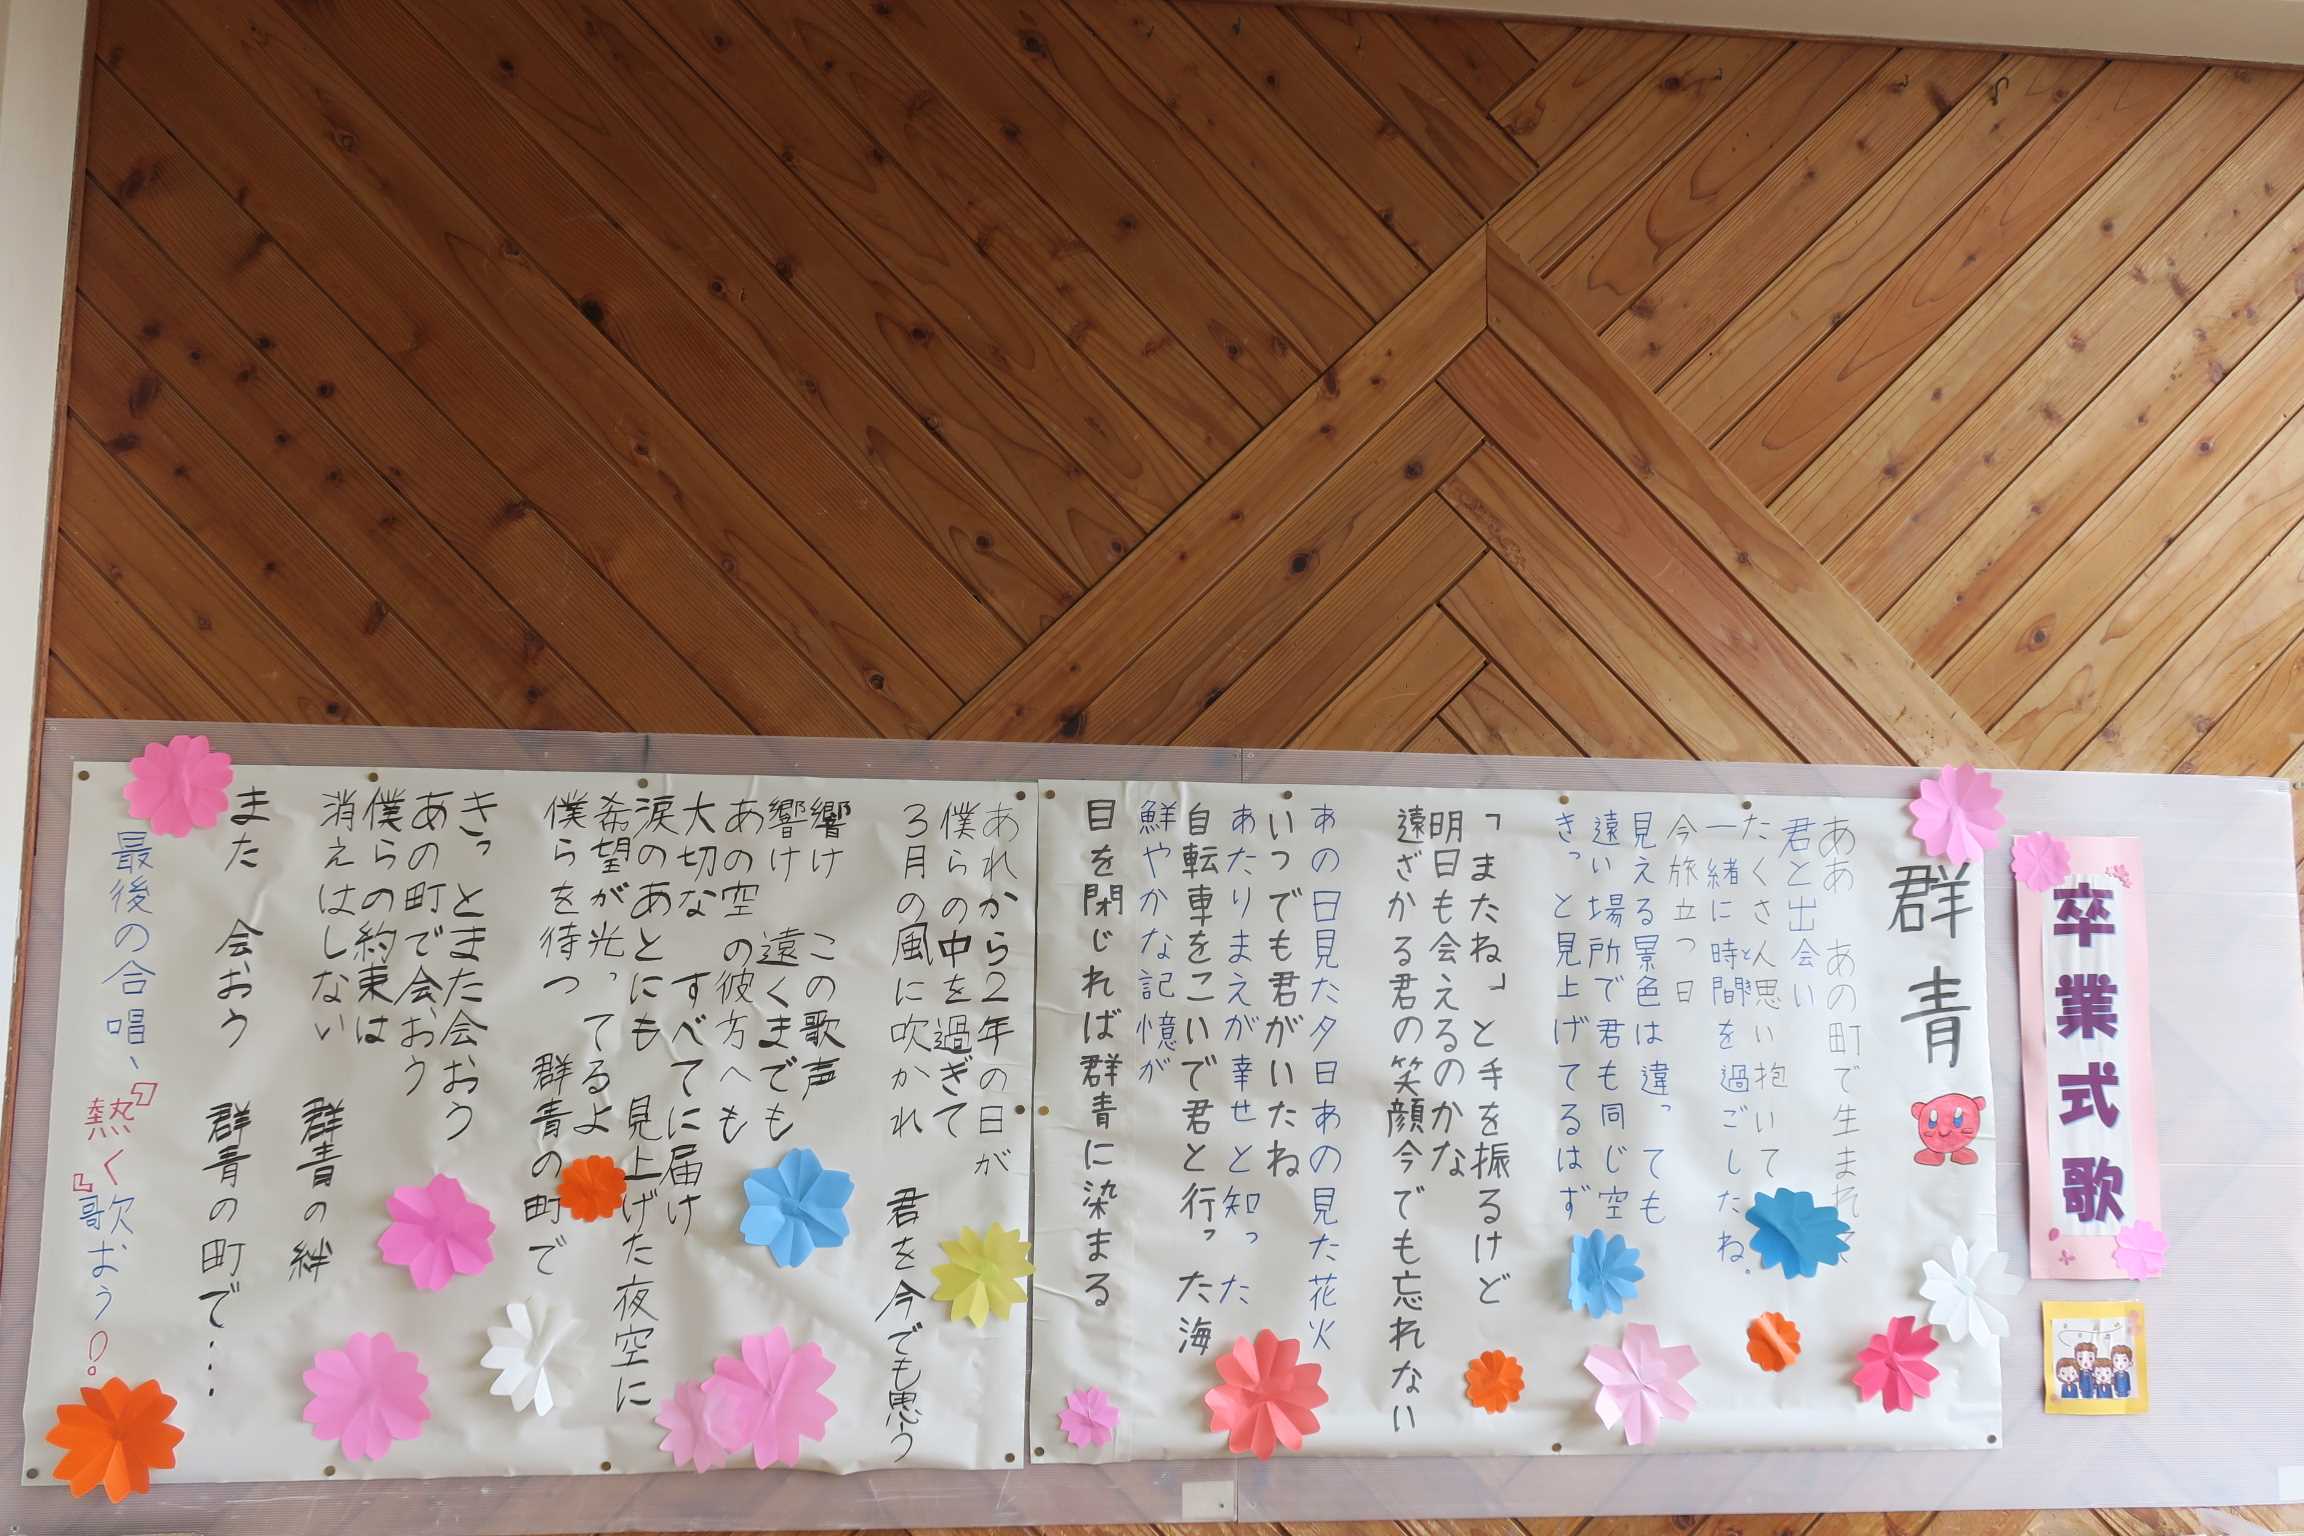 卒業式歌
群青
ああ あの町で生まれて
君と出会い
たくさん思い抱いて
一緒に時間を過ごしたね.
とき
今旅立つ日
見える景色は違っても
遠い場所で君も同じ空
きっと見上げてるはず
「またね」と手を振るけど
明日も会えるのかな
遠ざかる君の笑顔今でも忘れない
あの日見た夕日あの見た花火
いつでも君がいたね
あたりまえが幸せと知った
自転車をこいで君と行った海
鮮やかな記憶が
目を閉じれば群青に染まる
あれから2年の日が
僕らの中を過ぎて
3月の風に吹かれ 君を今でも思う
響け この歌声
響け 遠くまでも
あの空の彼方へも
大切な すべてに届け
涙のあとにも 見上げた夜空に
希望が光ってるよ
僕らを待つ 群青の町で
きっとまた会おう
あの町で会おう
僕らの約束は
消えはしない 群青の絆
また 会おう 群青の町で…
最後の合唱、『熱く』歌おう!